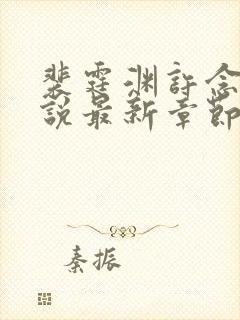 裴霆渊許念
說最新章節
秦振